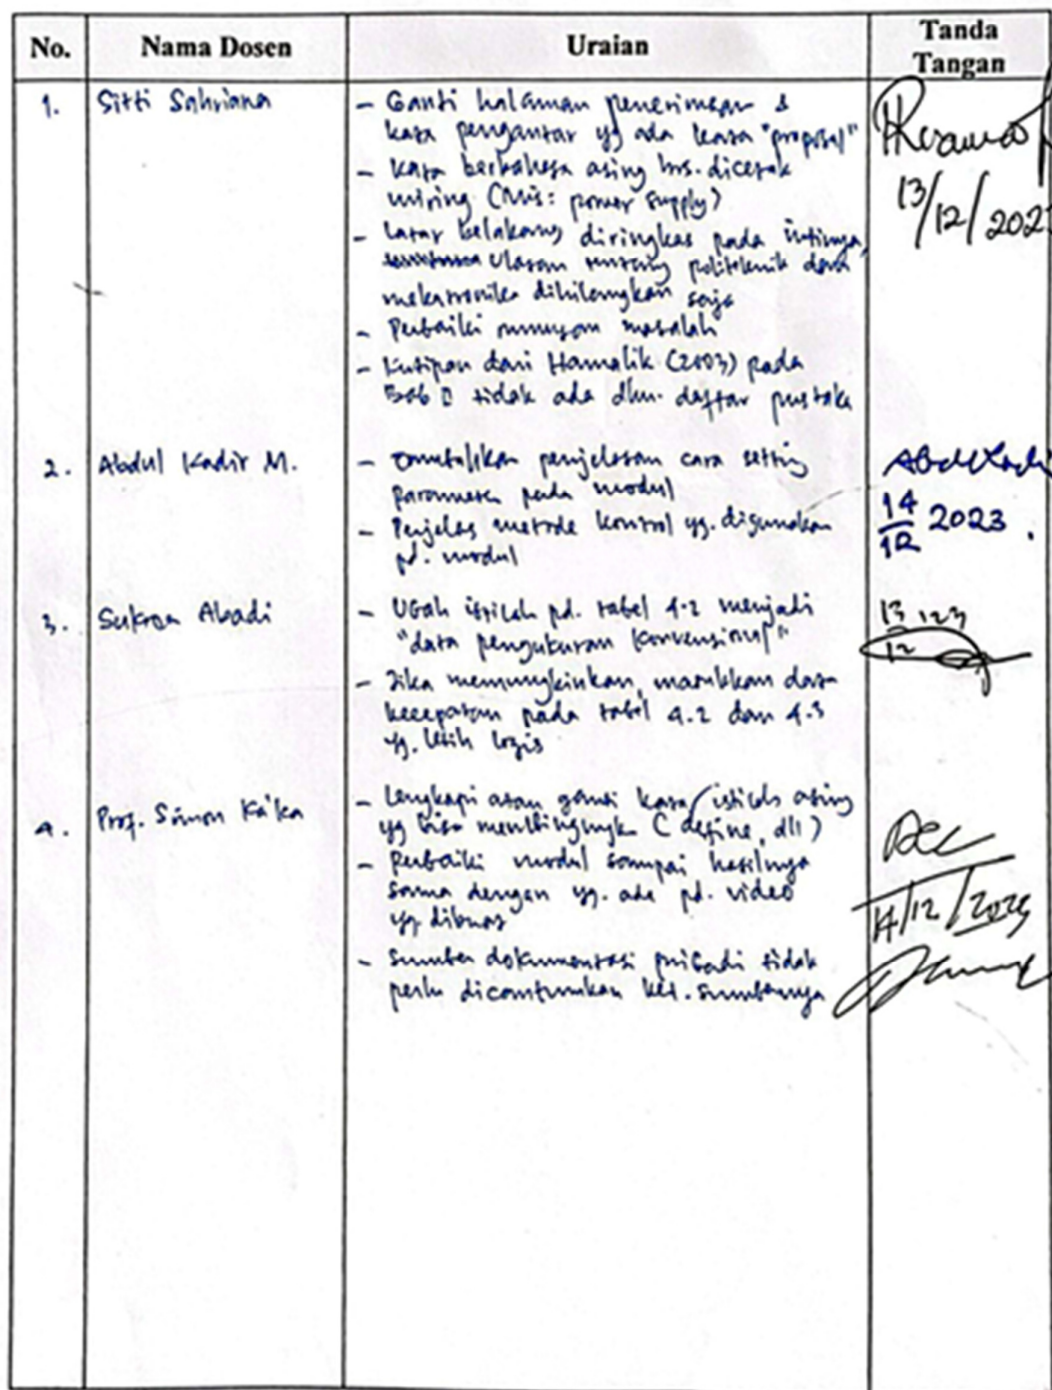 No. Nama Dosen Uraian Tanda Tangan
1. Sitti Sahriana
- Ganti halaman penerimaan &
kata pengantar yg ada kata "proposal"
- kata berbahasa asing hrs. dicetak
miring (Mis: power supply)
- Latar belakang diringkas pada intinya,
ulasan tentang politeknik dan
mekatronika dihilangkan saja
- Perbaiki rumusan masalah
- Kutipan dari Hamalik (2003) pada
Bab II tidak ada dlm. daftar pustaka
13/12/2023
2. Abdul Kadir M.
- penjelasan cara setting
parameter pada modul
- Penjelas metode kontrol yg. digunakan
pd. modul
Abd Kadir
14/12 2023.
3. Sukroa Abadi
- Ubah istilah pd. tabel 4.2 menjadi
"data pengukuran konvensional"
- Jika memungkinkan, masukkan data
kecepatan pada tabel 4.2 dan 4.3
yg. lebih logis
13/12 23
4. Prof. Simon Ka'ka
- Lengkapi atau ganti kata/istilah asing
yg bisa (define, dll)
- Perbaiki modul sampai hasilnya
sama dengan yg. ada pd. video
yg dibuat
- Sumber dokumentasi pribadi tidak
perlu dicantumkan ket. sumbernya
14/12/2023